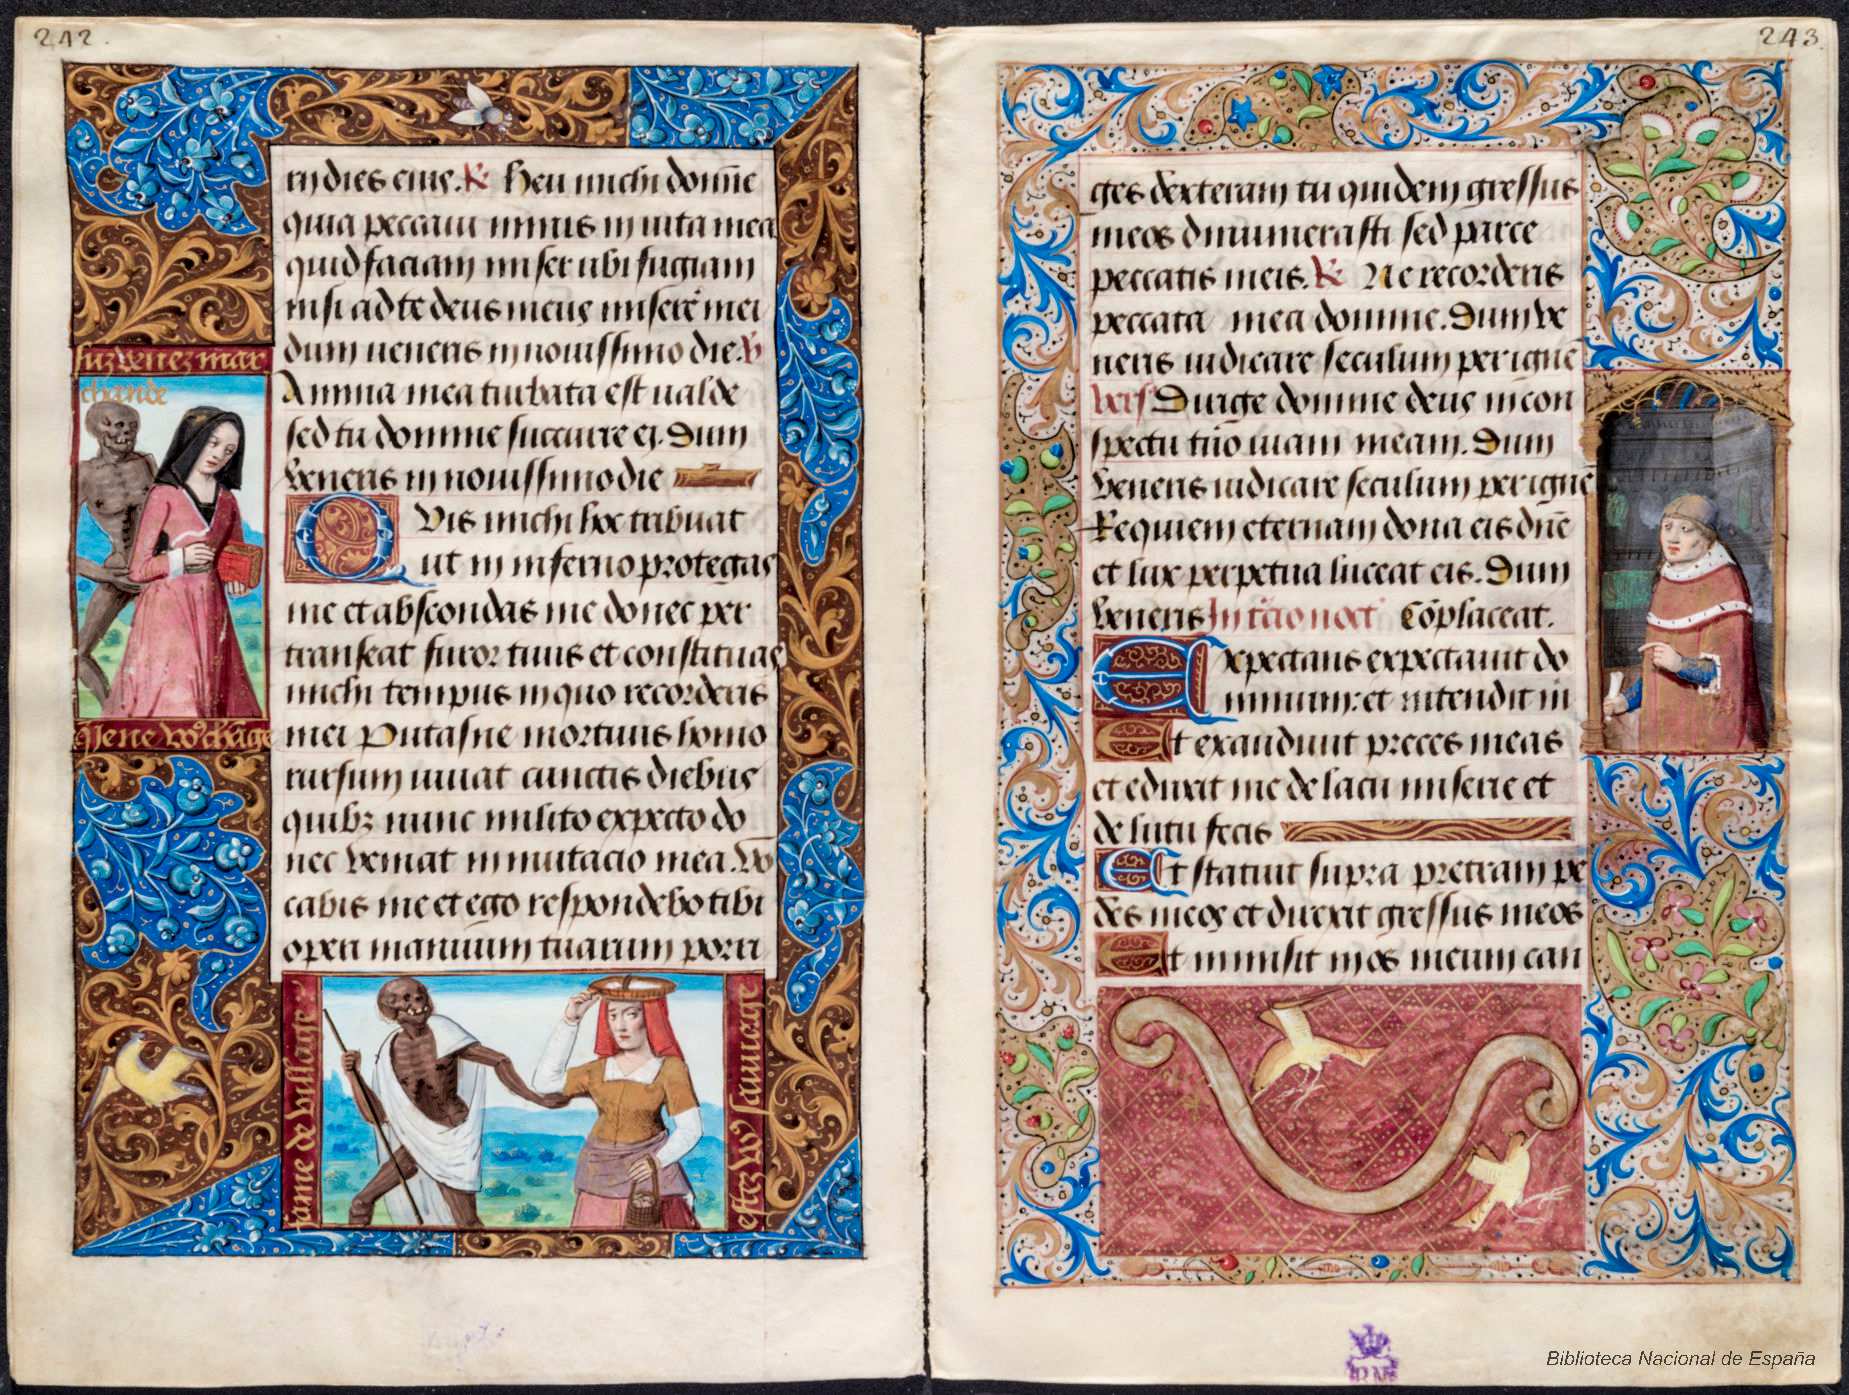 242.
in dies eius. R Heu michi domine
quia peccavi nimis in vita mea
quid faciam miser ubi fugiam
nisi ad te deus meus misere mei
dum veneris in novissimo die. V
Anima mea turbata est valde
sed tu domine succurre ei. Dum
veneris in novissimo die
Quis michi hoc tribuat
ut in inferno protegas
me et abscondas me donec per
transeat furor tuus et constituas
michi tempus in quo recorderis
mei Putasne mortuus homo
rursum vivat cunctis diebus
quibz nunc milito expecto do
nec veniat inmutacio mea. Vo
cabis me et ego respondebo tibi
operi manuum tuarum porri
suz venez mar
chande
fame de village
estez vo sauuage
243.
ges dexteram tu quidem gressus
meos dinumerasti sed parce
peccatis meis. R Ne recorderis
peccata mea domine. Dum ve
neris iudicare seculum per ignem
vers Dirige domine deus in con
spectu tuo viam meam. Dum
veneris iudicare seculum per igne
Requiem eternam dona eis dne
et lux perpetua luceat eis. Dum
veneris In tcio noct Coplaceat.
Expectans expectavi do
minum: et intendit m
Et exaudivit preces meas
et eduxit me de lacu miserie et
de lutu fecis
Et statuit supra pretram pe
des meos et direxit gressus meos
Et inmisit in os meum can
Biblioteca Nacional de España